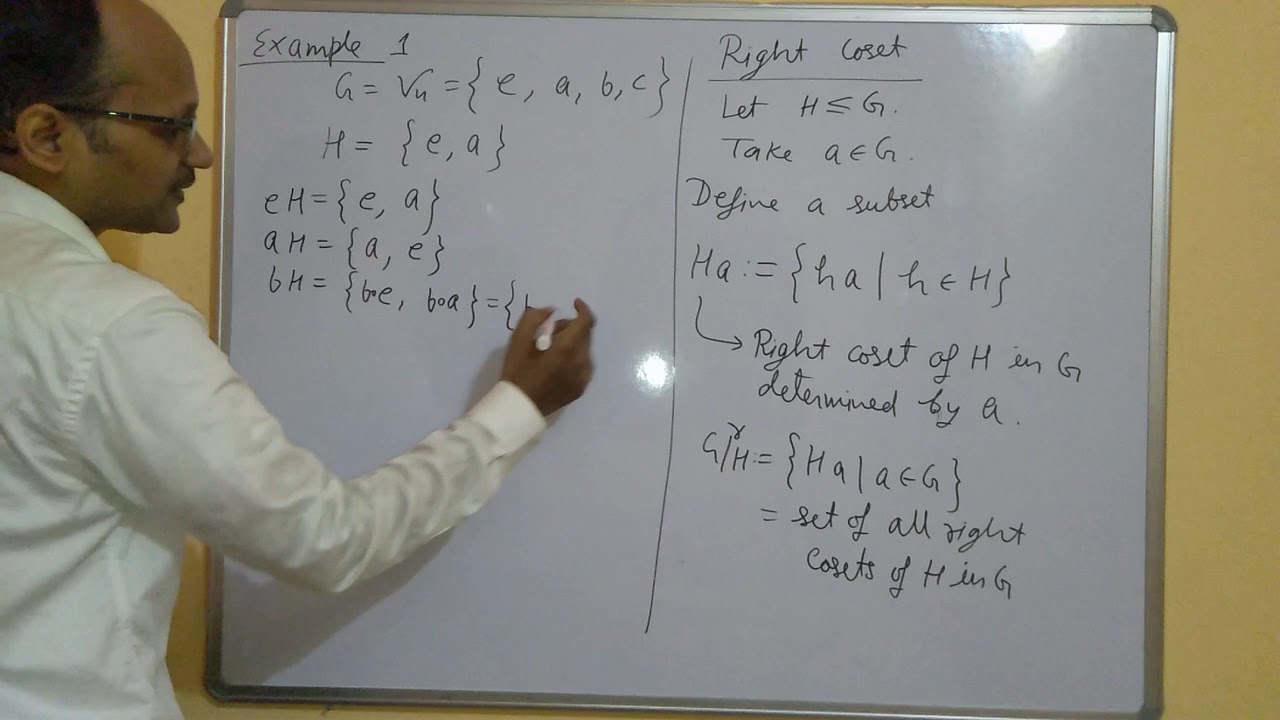 Example 1
G = V₄ = { e, a, b, c }
H = { e, a }
eH = { e, a }
aH = { a, e }
bH = { b∘e, b∘a } = { b
Right Coset
Let H ≤ G.
Take a ∈ G.
Define a subset
Ha := { ha | h ∈ H }
→ Right coset of H in G
determined by a.
G/ʳH := { Ha | a ∈ G }
= set of all right
cosets of H in G